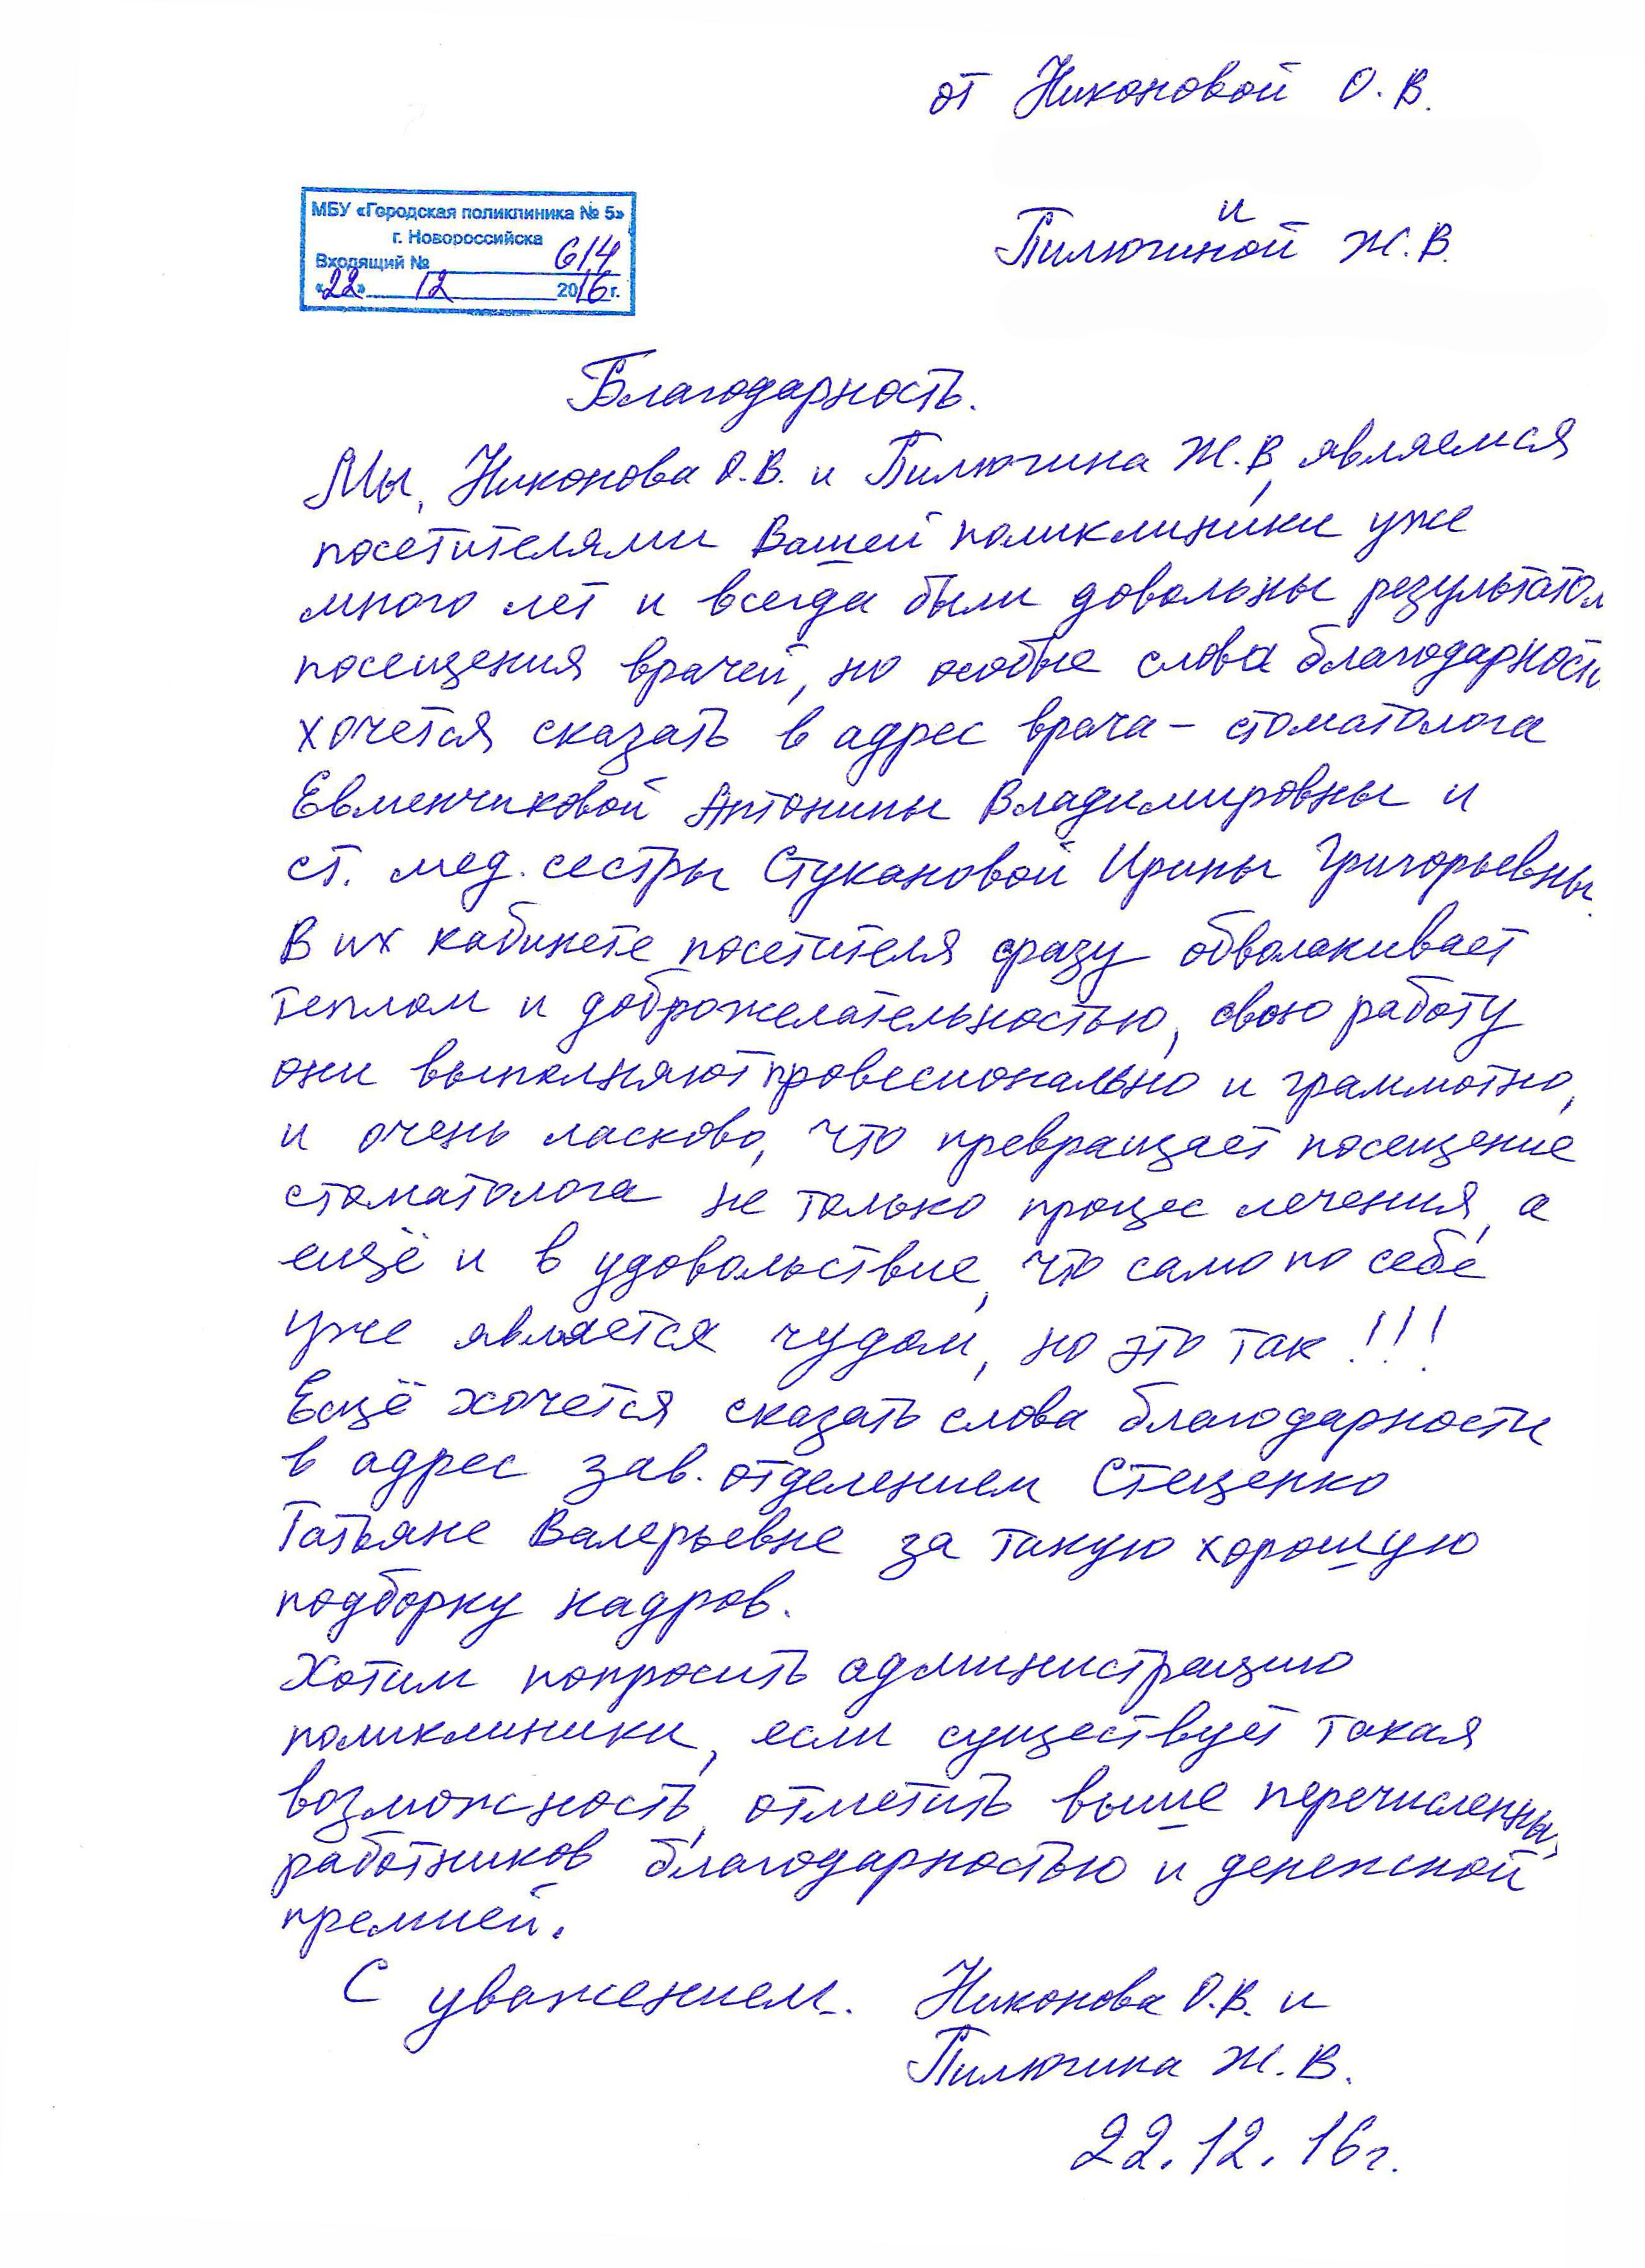 от Никоновой О.В.
и
Пилюгиной Ж.В.
МБУ «Городская поликлиника № 5»
г. Новороссийска
Входящий № 614
«22» 12 2016 г.
Благодарность.
Мы, Никонова О.В. и Пилюгина Ж.В, являемся
посетителями Вашей поликлиники уже
много лет и всегда были довольны результатом
посещения врачей, но особые слова благодарности
хочется сказать в адрес врача – стоматолога
Евменчиковой Антонины Владимировны и
ст. мед. сестры Стукановой Ирины Григорьевны.
В их кабинете посетителя сразу обволакивает
теплом и доброжелательностью, свою работу
они выполняют провесионально и грамматно,
и очень ласково, что превращает посещение
стоматолога не только процес лечения, а
ещё и в удовольствие, что само по себе
уже является чудом, но это так!!!
Ещё хочется сказать слова благодарности
в адрес зав. отделением Стеценко
Татьяне Валерьевне за такую хорошую
подборку кадров.
Хотим попросить администрацию
поликлиники, если существует такая
возможность, отметить выше перечисленных
работников благодарностью и денежной
премией.
С уважением. Никонова О.В. и
Пилюгина Ж.В.
22.12.16г.